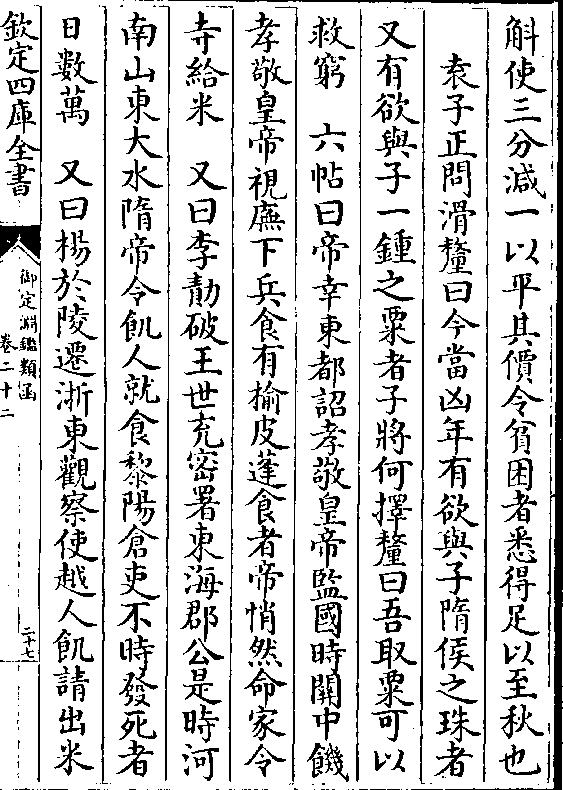 斛使三分減一以平其價令貧困者悉得足以至秋也
袁子正問滑釐曰今當凶年有欲與子隋侯之珠者
又有欲與子一鍾之粟者子將何擇釐曰吾取粟可以
救窮　六帖曰帝幸東都詔孝敬皇帝監國時關中饑
孝敬皇帝視廡下兵食有榆皮蓬食者帝悄然命家令
寺給米　又曰李勣破王世充密署東海郡公是時河
南山東大水隋帝令飢人就食黎陽倉吏不時發死者
日數萬　又曰楊於陵遷浙東觀察使越人飢請出米
欽定四庫全書
御定淵鑑類函
卷二十二
二十七